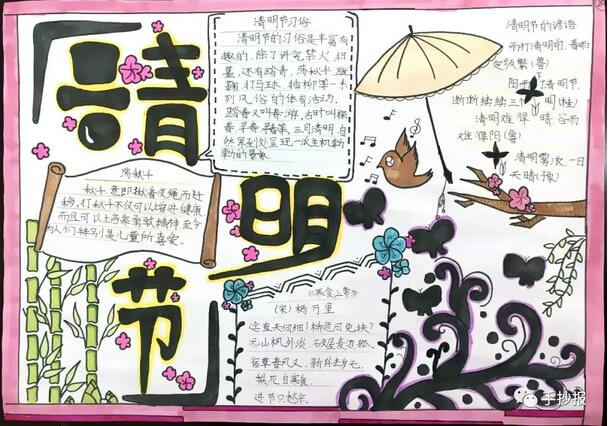 清明节
清明节习俗
清明节的习俗是丰富有
趣的,除了讲究禁火、扫
墓,还有踏青、荡秋千、蹴
鞠、打马球、插柳等一系
列风俗的体育活动。
踏春又叫春游,古时叫探
春、寻春等。三月清明,自
然界到处呈现一派生机勃
勃的景象
荡秋千
秋千,意即揪着皮绳而迁
移。打秋千不仅可以增进健康
而且可以培养勇敢精神,至今
为人们特别是儿童所喜爱。
清明节的谚语
雨打清明前,春雨
定频繁(鲁)
阳雨了清明节
断断续续三个月(桂)
清明难得晴,谷雨
难得阳(鲁)
清明雾浓,一日
天晴(豫)
《寒食上冢》
(宋)杨万里
迳直夫何细!桥危可免扶?
远山枫外淡,破屋麦边孤。
宿草春风又,新阡去岁无。
梨花自寒食,
进节只愁余。
手抄报